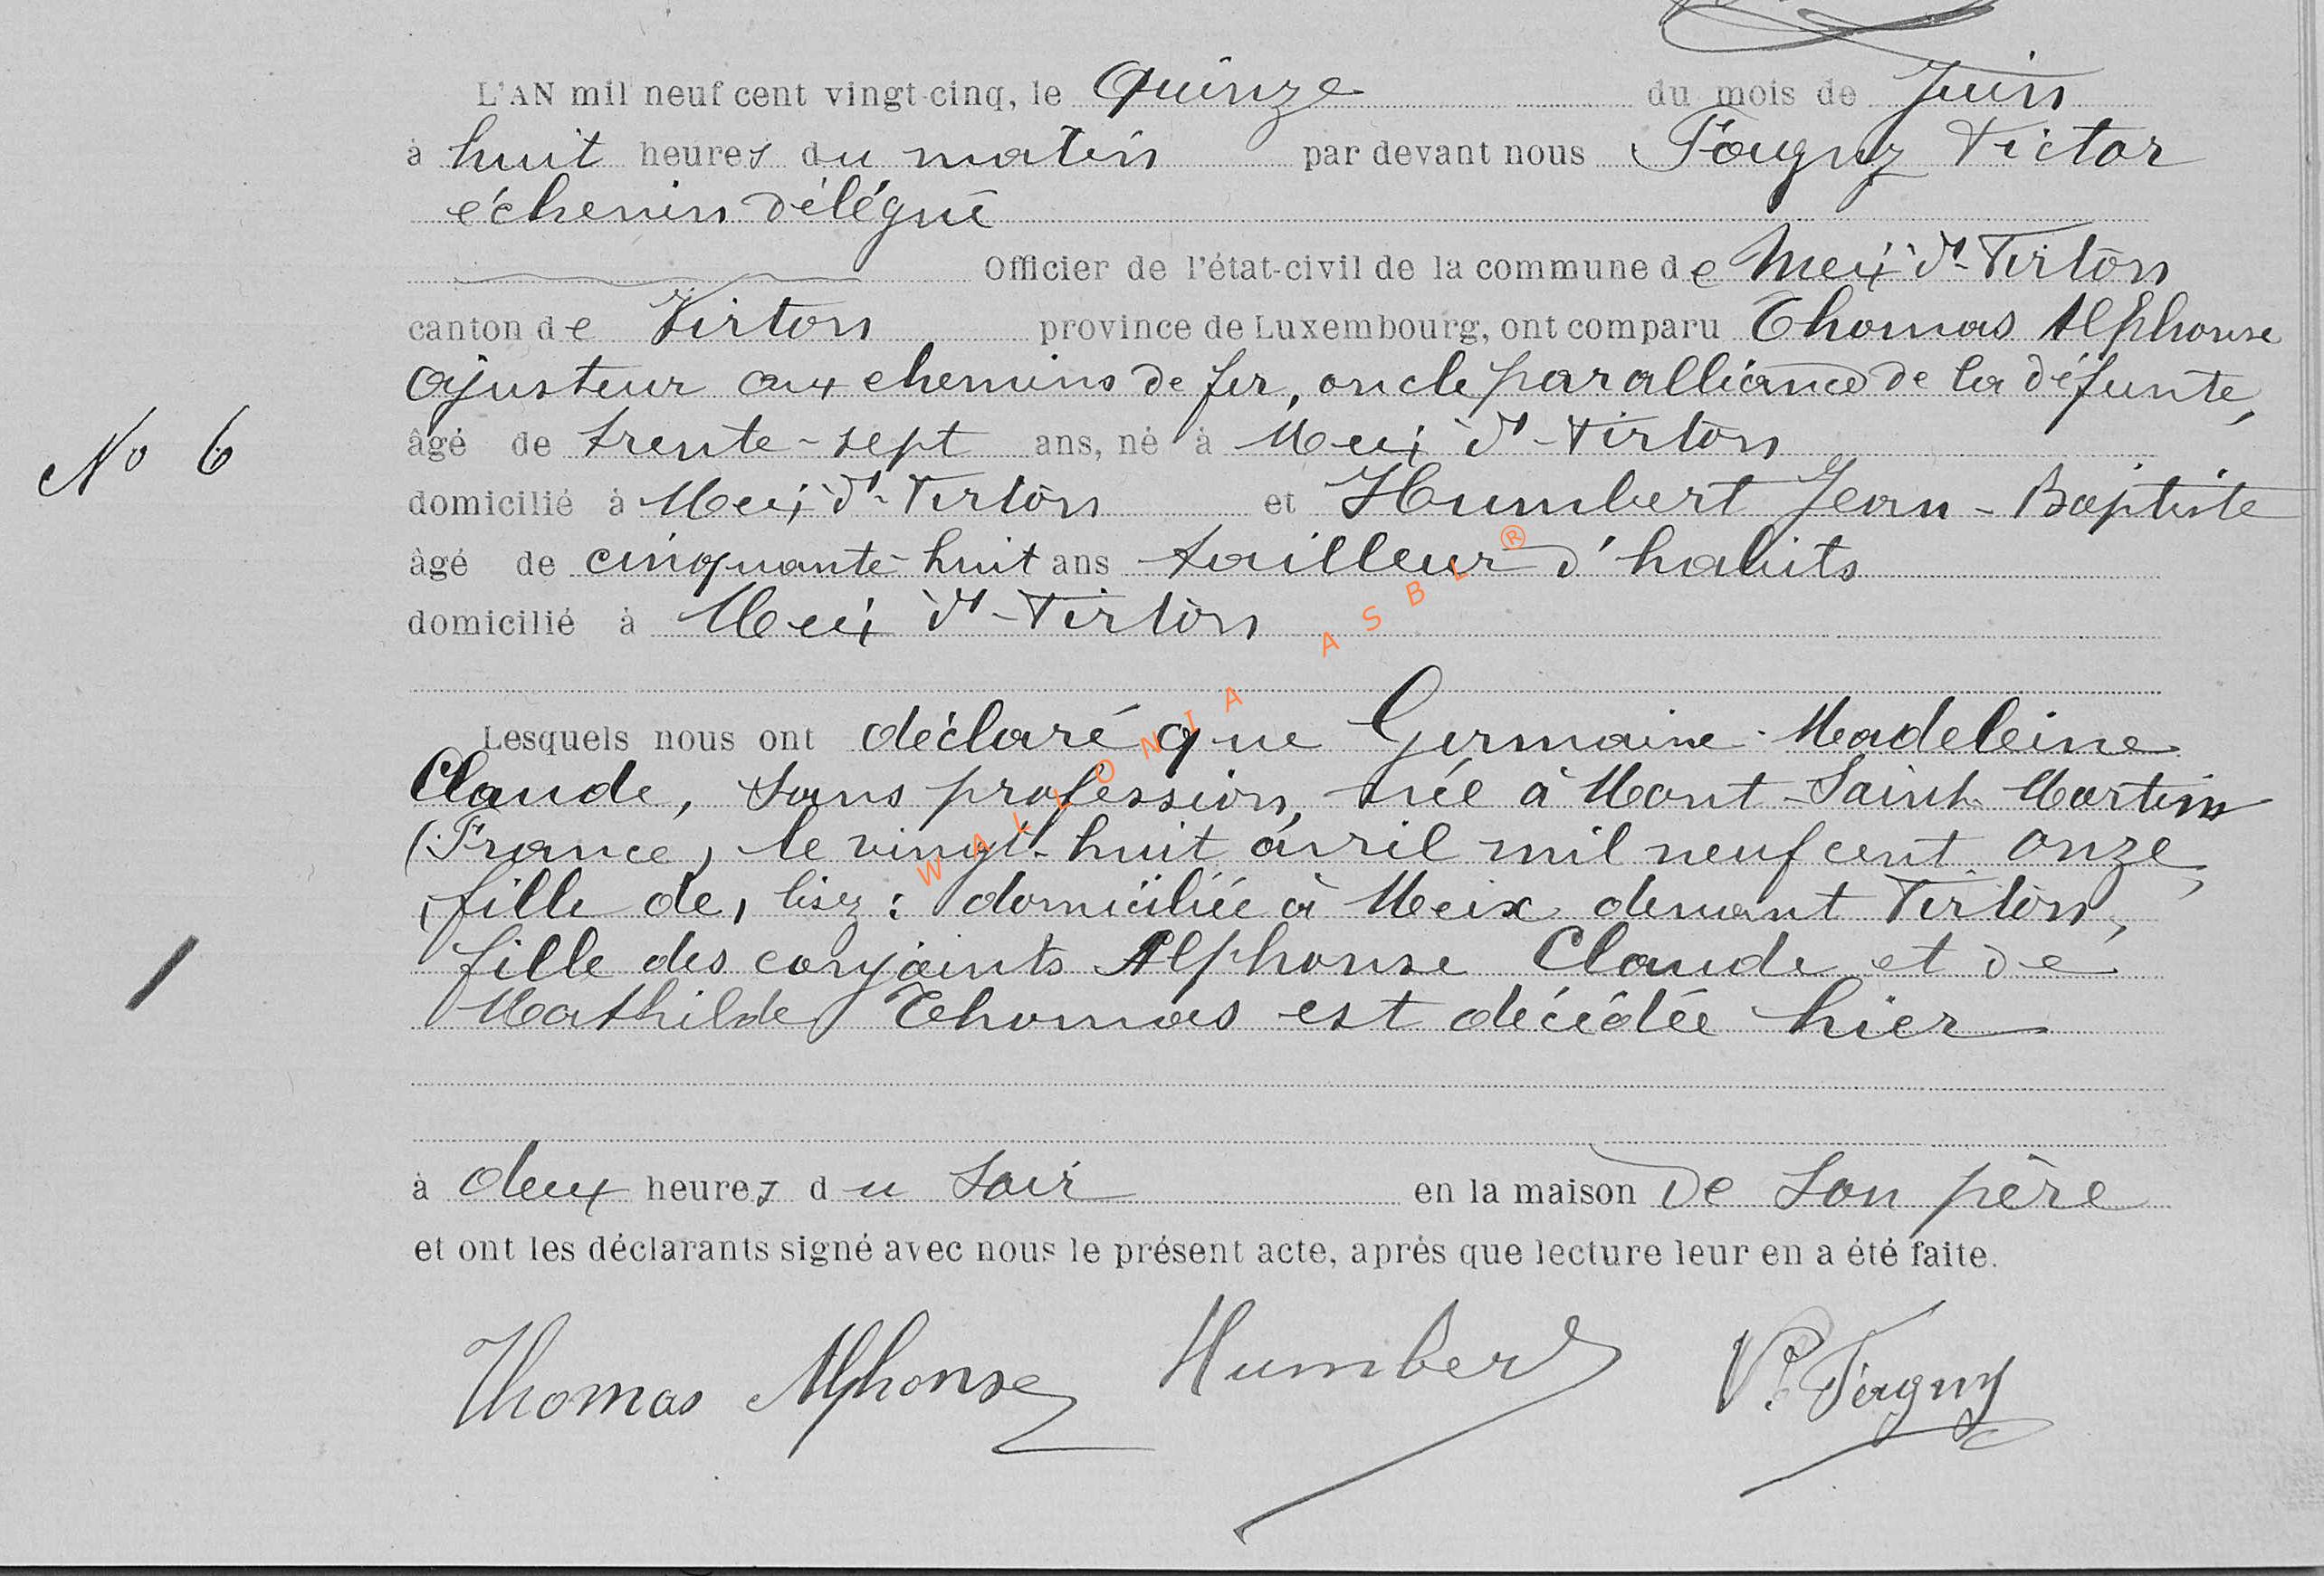 L'AN mil neuf cent vingt-cinq, le Quinze du mois de Juin
à huit heures du matin par devant nous Fougny Victor
échevin délégué
Officier de l'état-civil de la commune de Meix dt-Virton
canton de Virton province de Luxembourg, ont comparu Thomas Alphonse
ajusteur aux chemins de fer, oncle par alliance de la défunte,
No 6
âgé de trente-sept ans, né à Meix dt-Virton
domicilié à Meix dt-Virton et Humbert Jean-Baptiste
âgé de cinquante-huit ans tailleur d'habits
domicilié à Meix dt-Virton
Lesquels nous ont déclaré que Germaine-Madeleine
Claude, sans profession, née à Mont-Saint-Martin
(France), le vingt-huit avril mil neuf cent onze,
(fille de, lisez: domiciliée à Meix devant Virton,
fille des conjoints Alphonse Claude et de
Mathilde Thomas est décédée hier
à deux heures du soir en la maison de son père
et ont les déclarants signé avec nous le présent acte, après que lecture leur en a été faite.
Thomas Alphonse Humbert V. Fougny
WALLONIA ASBL ®